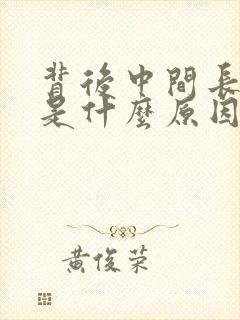 背後中間長
是什麼原因
黃俊荣